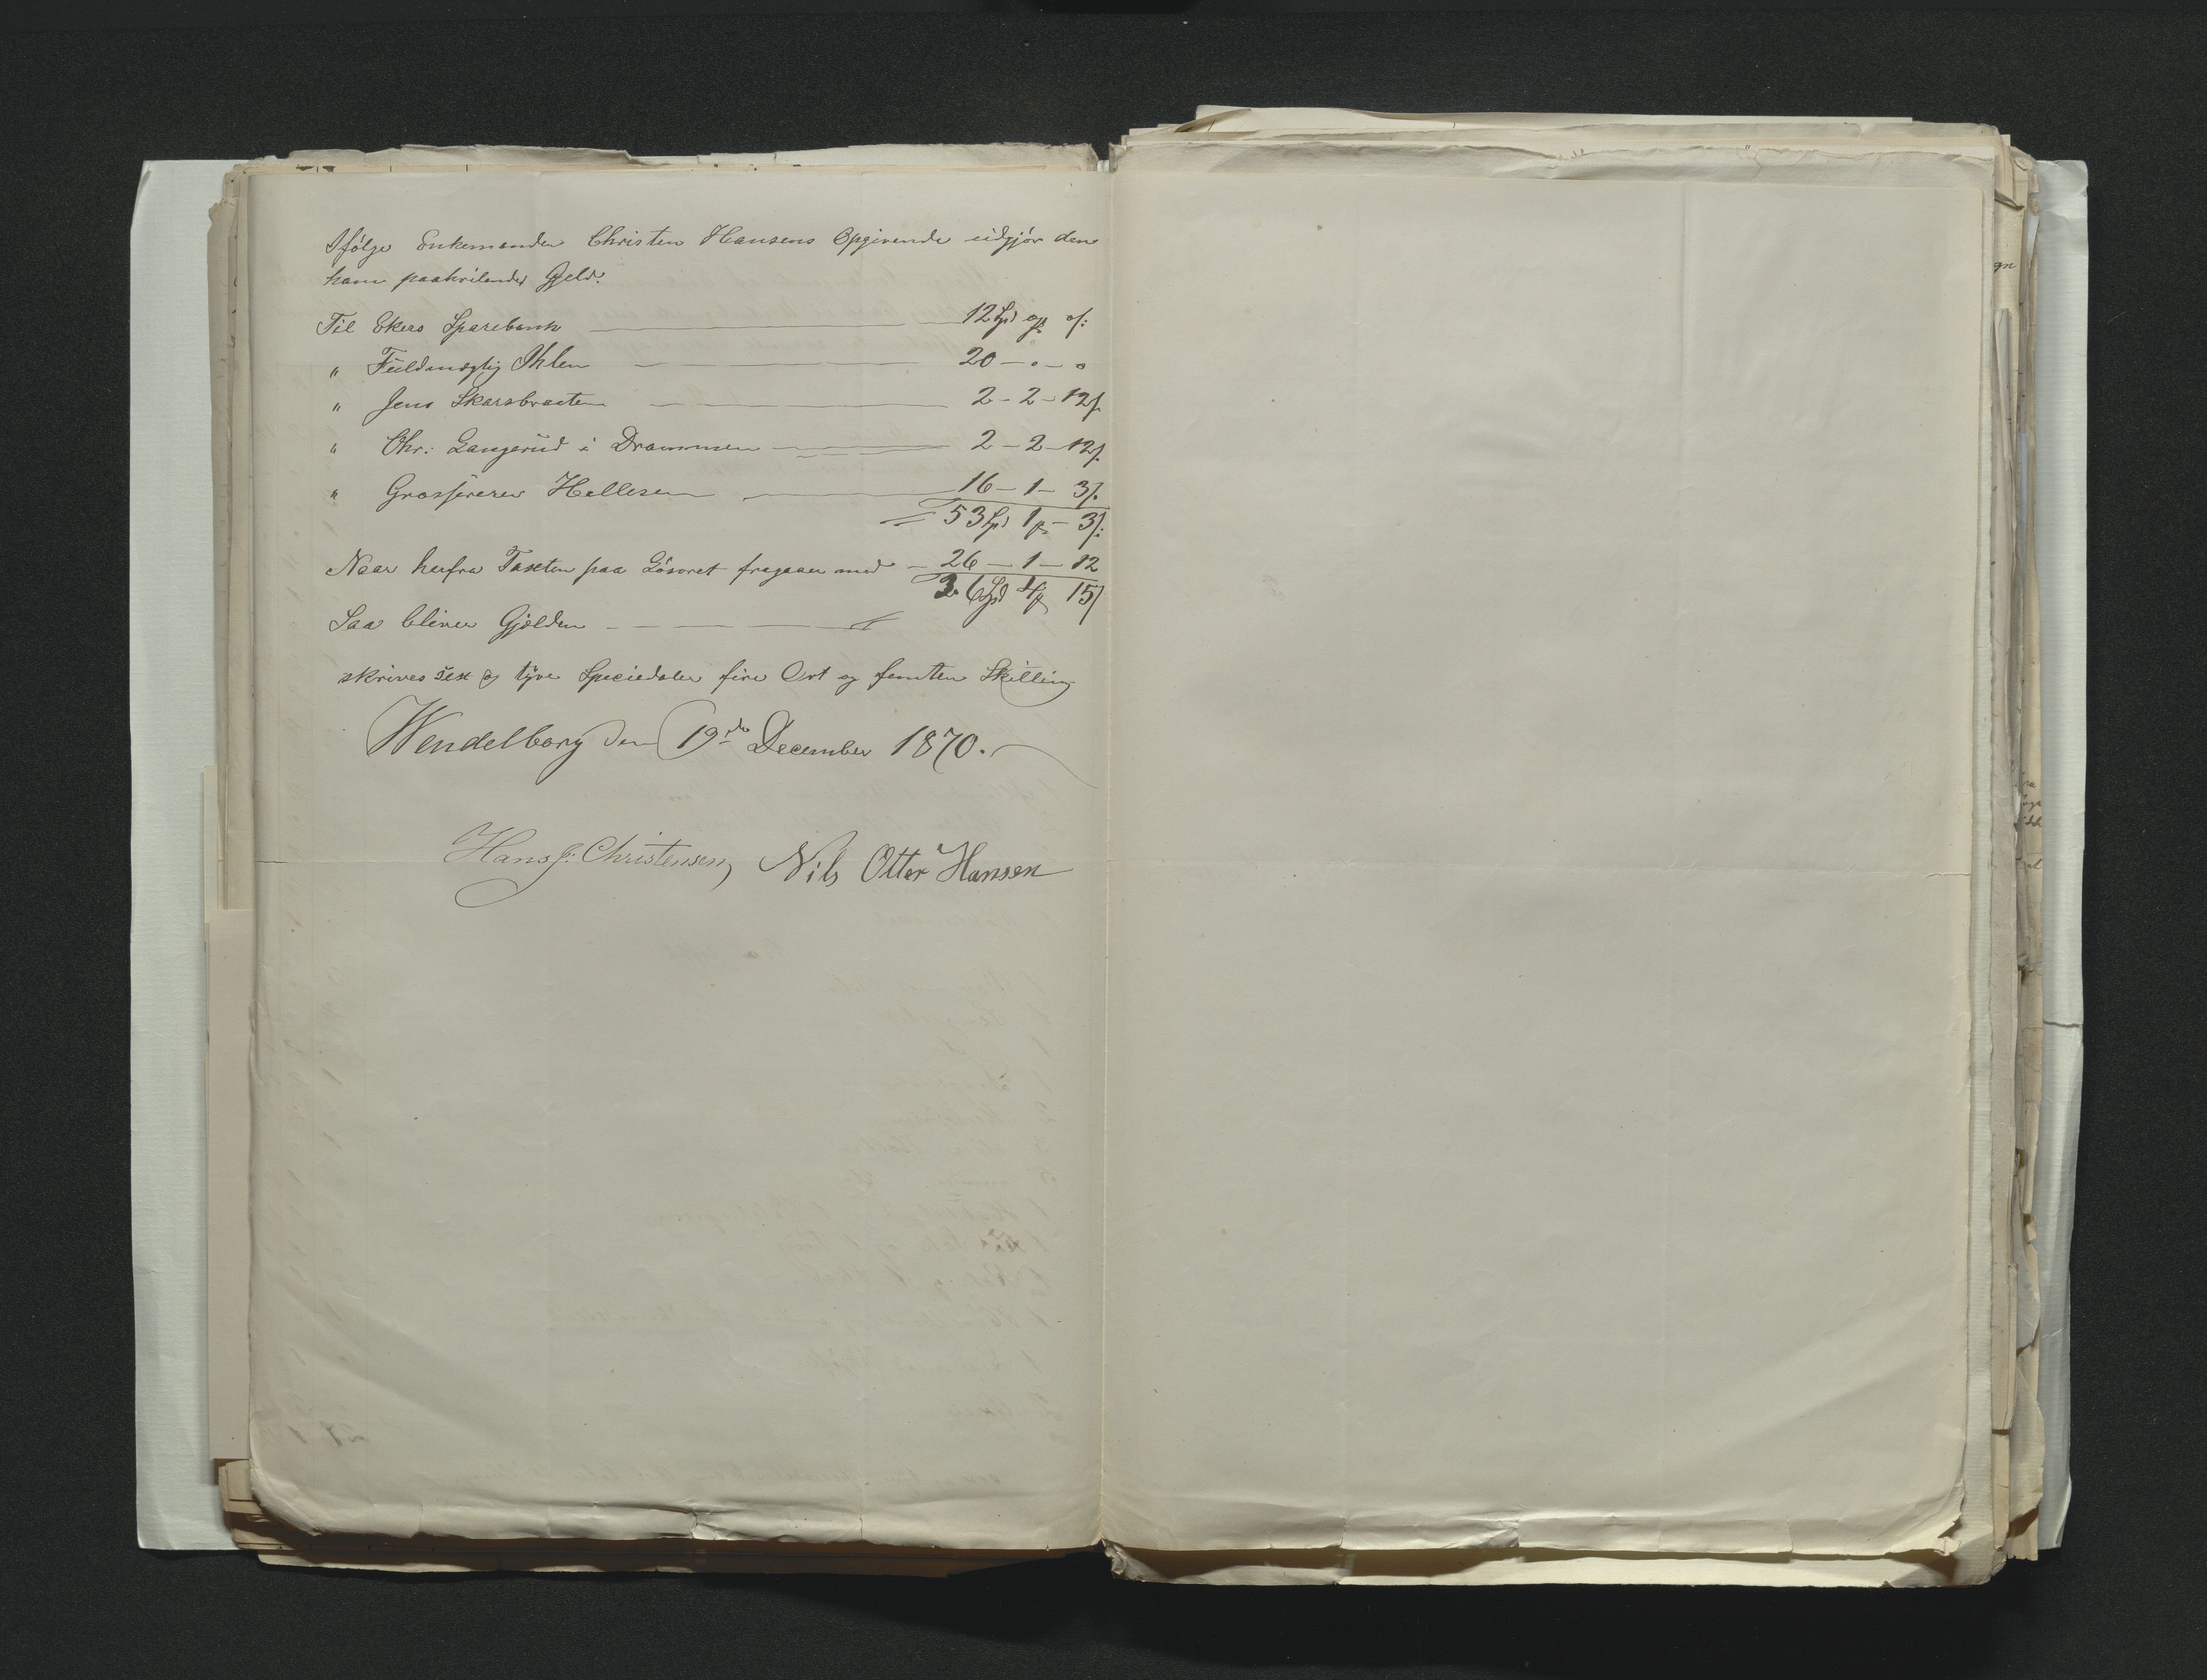 Ifølge Enkemanden Christen Hansens Opgivende udgjør den
ham paahvilende Gjeld:
Til Ekers Sparebank 12 Spd op o/:
" Fuldmægtig Ihlen 20 - o - o
" Jens Skarsbraaten 2 - 2 - 12/.
" Chr: Langerud i Drammen 2 - 2 - 12/.
" Grosserer Hellesen 16 - 1 - 3/.
= 53 Spd 1 p - 3/:
Naar herfra Taxten paa Løsøret fragaaer med - 26 - 1 - 12
26 Spd 4 p 15/
Saa bliver Gjælden
skrives sex og tyve Speciedaler fire Ort og femten Skilling
Wendelborg den 19de December 1870.
Hans J: Christensen, Nils Otter Hansen